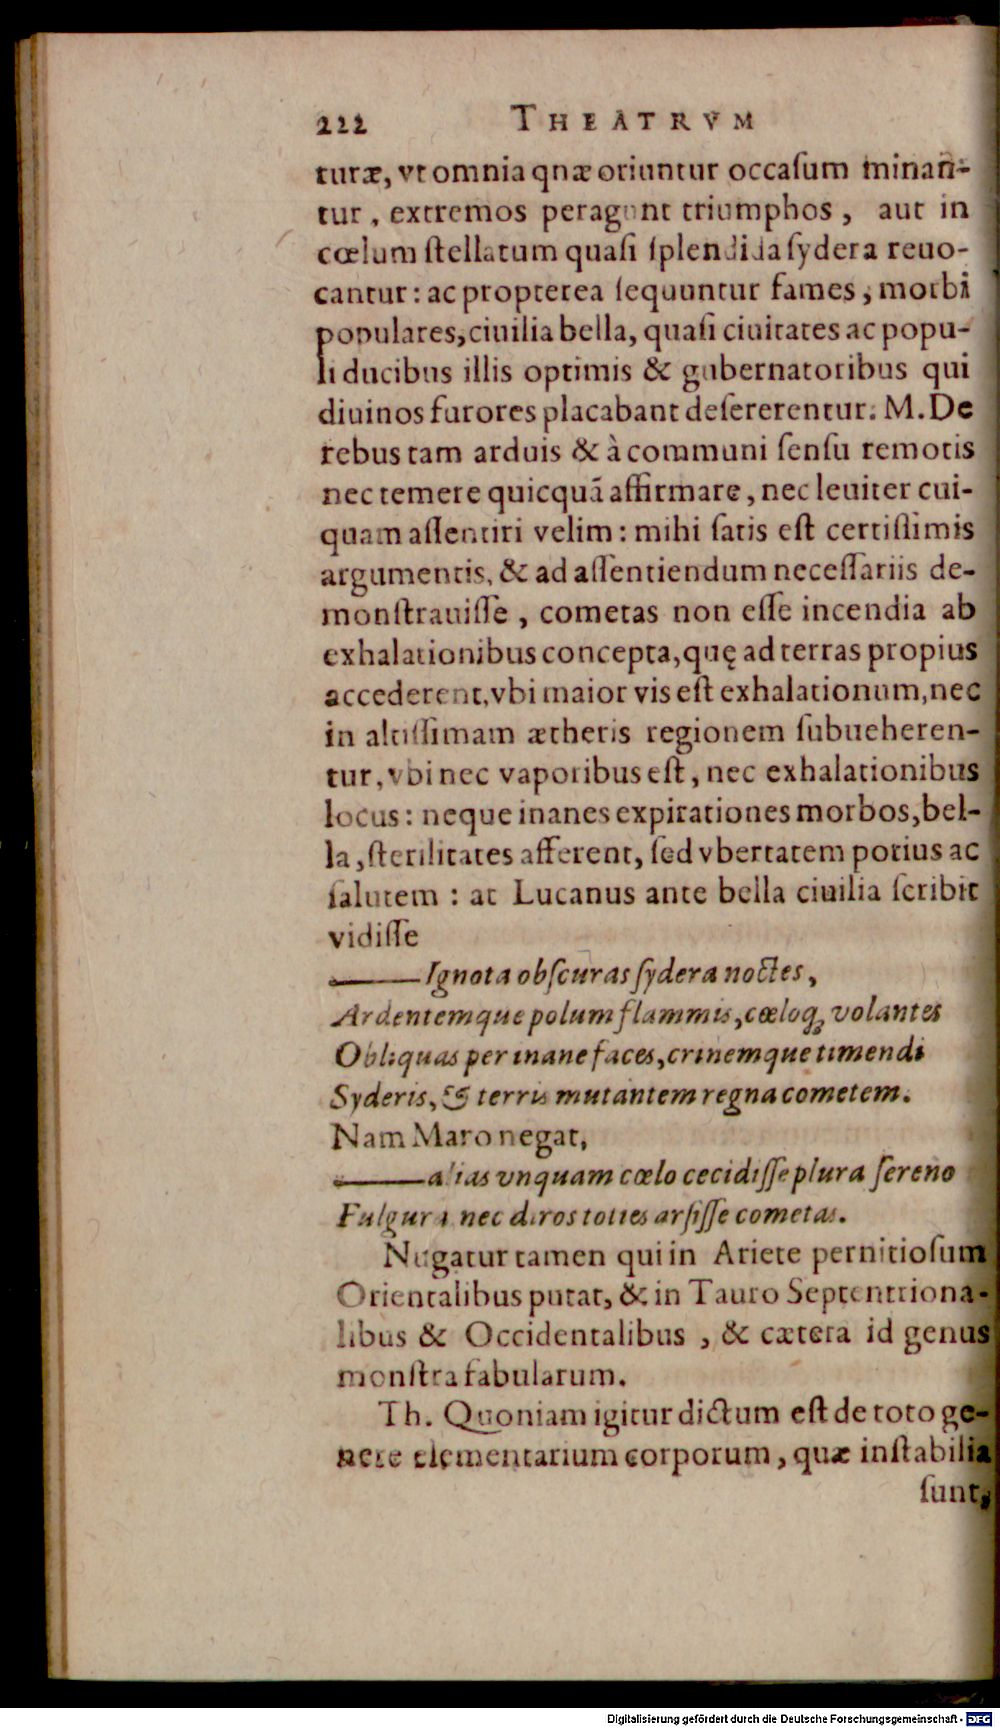 222 THEATRVM
turæ, vt omnia qnæ oriuntur occaſum minan-
tur, extremos peragunt triumphos, aut in
cœlum ſtellatum quaſi ſplendida ſydera reuo-
cantur: ac propterea ſequuntur fames, morbi
populares, ciuilia bella, quaſi ciuitates ac popu-
li ducibus illis optimis & gubernatoribus qui
diuinos furores placabant deſererentur. M. De
rebus tam arduis & à communi ſenſu remotis
nec temere quicquā affirmare, nec leuiter cui-
quam aſſentiri velim: mihi ſatis eſt certiſſimis
argumentis, & ad aſſentiendum neceſſariis de-
monſtrauiſſe, cometas non eſſe incendia ab
exhalationibus concepta, quę ad terras propius
accederent, vbi maior vis eſt exhalationum, nec
in altiſſimam ætheris regionem ſubueheren-
tur, vbi nec vaporibus eſt, nec exhalationibus
locus: neque inanes expirationes morbos, bel-
la, ſterilitates afferent, ſed vbertatem potius ac
ſalutem: at Lucanus ante bella ciuilia ſcribit
vidiſſe
——Ignota obſcuras ſydera noctes,
Ardentemque polum flammis, cœloq; volantes
Obliquas per inane faces, crinemque timendi
Syderis, & terris mutantem regna cometem.
Nam Maro negat,
——alias vnquam cœlo cecidiſſe plura ſereno
Fulgura nec diros toties arſiſſe cometas.
Nugatur tamen qui in Ariete pernitioſum
Orientalibus putat, & in Tauro Septentriona-
libus & Occidentalibus, & cætera id genus
monſtra fabularum.
Th. Quoniam igitur dictum eſt de toto ge-
nere elementarium corporum, quæ inſtabilia
ſunt,
Digitalisierung gefördert durch die Deutsche Forschungsgemeinschaft - DFG